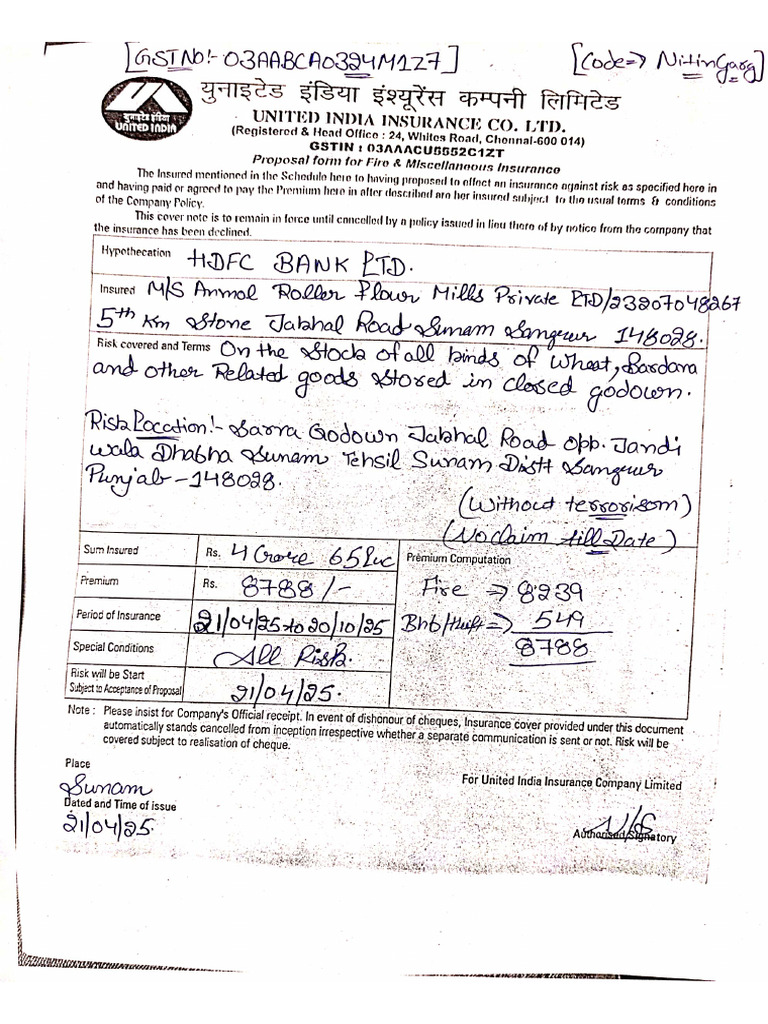 [GST No:- 03AABCA0324M1Z7] [Code=> Nitin Garg]
युनाइटेड इंडिया इंश्यूरेंस कम्पनी लिमिटेड
युनाइटेड इंडिया
UNITED INDIA
UNITED INDIA INSURANCE CO. LTD.
(Registered & Head Office : 24, Whites Road, Chennai-600 014)
GSTIN : 03AAACU5552C1ZT
Proposal form for Fire & Miscellaneous Insurance
The Insured mentioned in the Schedule here to having proposed to effect an insurance against risk as specified here in
and having paid or agreed to pay the Premium here in after described are her insured subject to the usual terms & conditions
of the Company Policy.
This cover note is to remain in force until cancelled by a policy issued in lieu there of by notice from the company that
the insurance has been declined.
Hypothecation HDFC BANK LTD.
Insured M/S Anmol Roller Flour Mills Private LTD/23207048267
5th Km Stone Jakhal Road Sunam Sangrur 148028.
Risk covered and Terms On the Stock of all kinds of Wheat, Bardana
and other Related goods stored in closed godown.
Risk Location:- Sarra Godown Jakhal Road Opp. Jandi
wala Dhabha Sunam Tehsil Sunam Distt Sangrur
Punjab-148028.
(Without terrorisom)
(No claim till Date)
Sum Insured Rs. 4 Crore 65 Lac Premium Computation
Premium Rs. 8788/- Fire => 8239
Period of Insurance 21/04/25 to 20/10/25 Bhb/theft=> 549
8788
Special Conditions All Risk.
Risk will be Start
Subject to Acceptance of Proposal 21/04/25.
Note : Please insist for Company's Official receipt. In event of dishonour of cheques, Insurance cover provided under this document
automatically stands cancelled from inception irrespective whether a separate communication is sent or not. Risk will be
covered subject to realisation of cheque.
Place
Sunam For United India Insurance Company Limited
Dated and Time of issue
21/04/25. Authorised Signatory